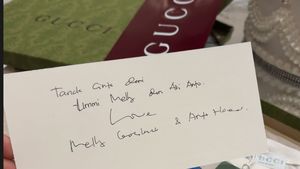 GUCCI
GUCCI
Tanda Cinta dari
Ummi Melly dan Abi Anto.
Love
Melly & Anto
GUCCI